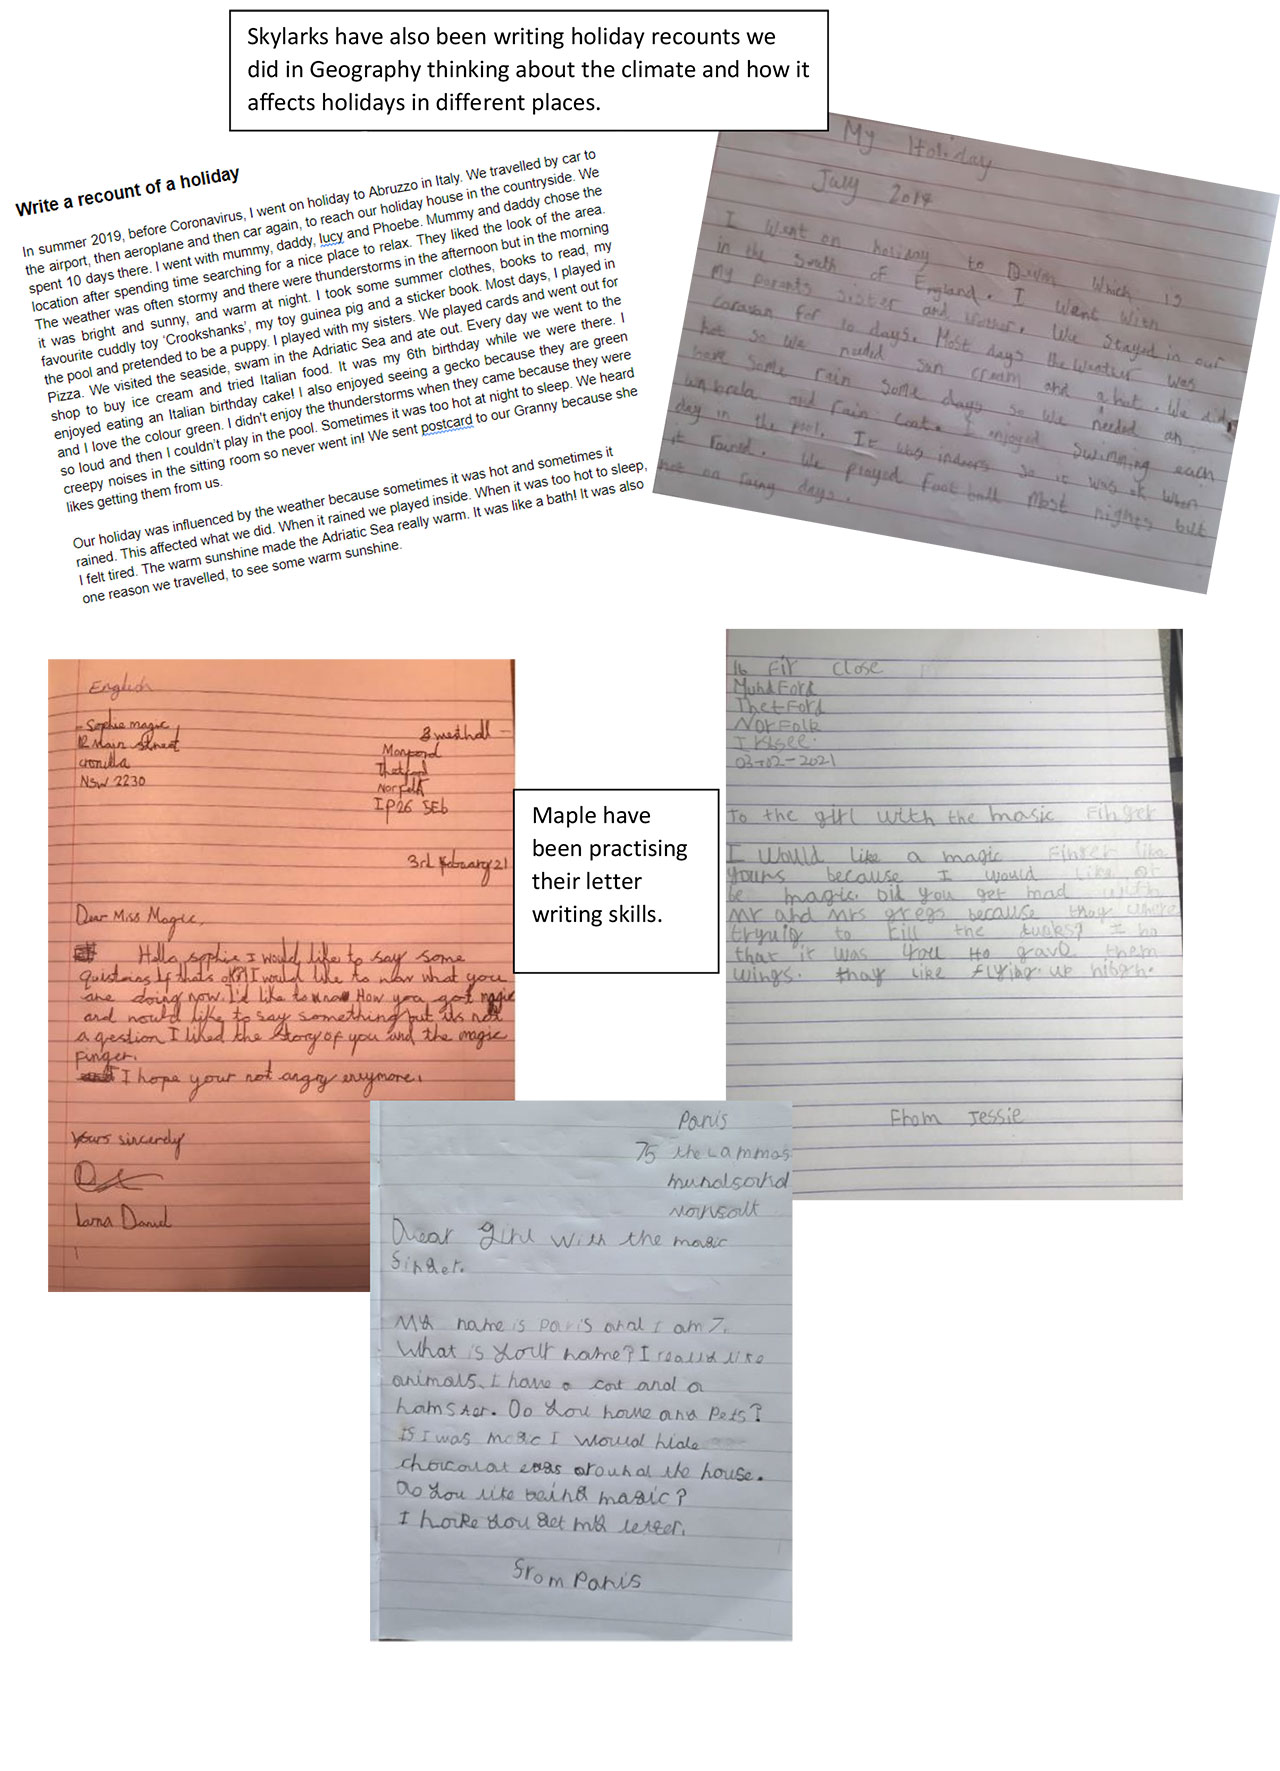 Skylarks have also been writing holiday recounts we
did in Geography thinking about the climate and how it
affects holidays in different places.
Write a recount of a holiday
In summer 2019, before Coronavirus, I went on holiday to Abruzzo in Italy. We travelled by car to
the airport, then aeroplane and then car again, to reach our holiday house in the countryside. We
spent 10 days there. I went with mummy, daddy, lucy and Phoebe. Mummy and daddy chose the
location after spending time searching for a nice place to relax. They liked the look of the area.
The weather was often stormy and there were thunderstorms in the afternoon but in the morning
it was bright and sunny, and warm at night. I took some summer clothes, books to read, my
favourite cuddly toy 'Crookshanks', my toy guinea pig and a sticker book. Most days, I played in
the pool and pretended to be a puppy. I played with my sisters. We played cards and went out for
Pizza. We visited the seaside, swam in the Adriatic Sea and ate out. Every day we went to the
shop to buy ice cream and tried Italian food. It was my 6th birthday while we were there. I
enjoyed eating an Italian birthday cake! I also enjoyed seeing a gecko because they are green
and I love the colour green. I didn't enjoy the thunderstorms when they came because they were
so loud and then I couldn't play in the pool. Sometimes it was too hot at night to sleep. We heard
creepy noises in the sitting room so never went in! We sent postcard to our Granny because she
likes getting them from us.
Our holiday was influenced by the weather because sometimes it was hot and sometimes it
rained. This affected what we did. When it rained we played inside. When it was too hot to sleep,
I felt tired. The warm sunshine made the Adriatic Sea really warm. It was like a bath! It was also
one reason we travelled, to see some warm sunshine.
My Holiday
July
I went on holiday to which is
in the South of England. I went with
My parents sister and brother. We stayed in our
caravan for 10 days. Most days the was
hot so we needed sun cream and a hat. We did
have some rain some days so we needed an
and rain coat. I enjoyed swimming each
day in the pool. It was indoors so it was ok when
it rained. We played football most nights but
not on days.
English
Sophie magic
12 Main street
NSW 2230
Norfolk
IP26 5EG
3rd 21
Dear Miss Magic,
Hello, sophie I would like to say some
if thats ok? I would like to now what you
are doing now. I'd like to know How you got magic
and would like to say something but its not
a qestion I liked the story of you and the magic
Finger.
I hope your not angry
Yours sincerely
Maple have
been practising
their letter
writing skills.
16 Fir Close
MundFord
ThetFord
NorFolk
03-02-2021
To the girl with the magic Finger
I would like a magic Finger like
yours because I would like
be magic. Did you get mad with
Mr and Mrs gregs because thay
to kill the
that it was you gave them
wings. thay like Flying up
From Jessie
Paris
75 the Lammas
Dear Girl with the magic
Singer.
My name is Paris and I am 7.
What is your name? I really like
animals. I have a cat and a
hamster. Do you have any Pets?
If I was I would hide
eggs around the house.
Do you like being magic?
I you get my letter.
From Paris